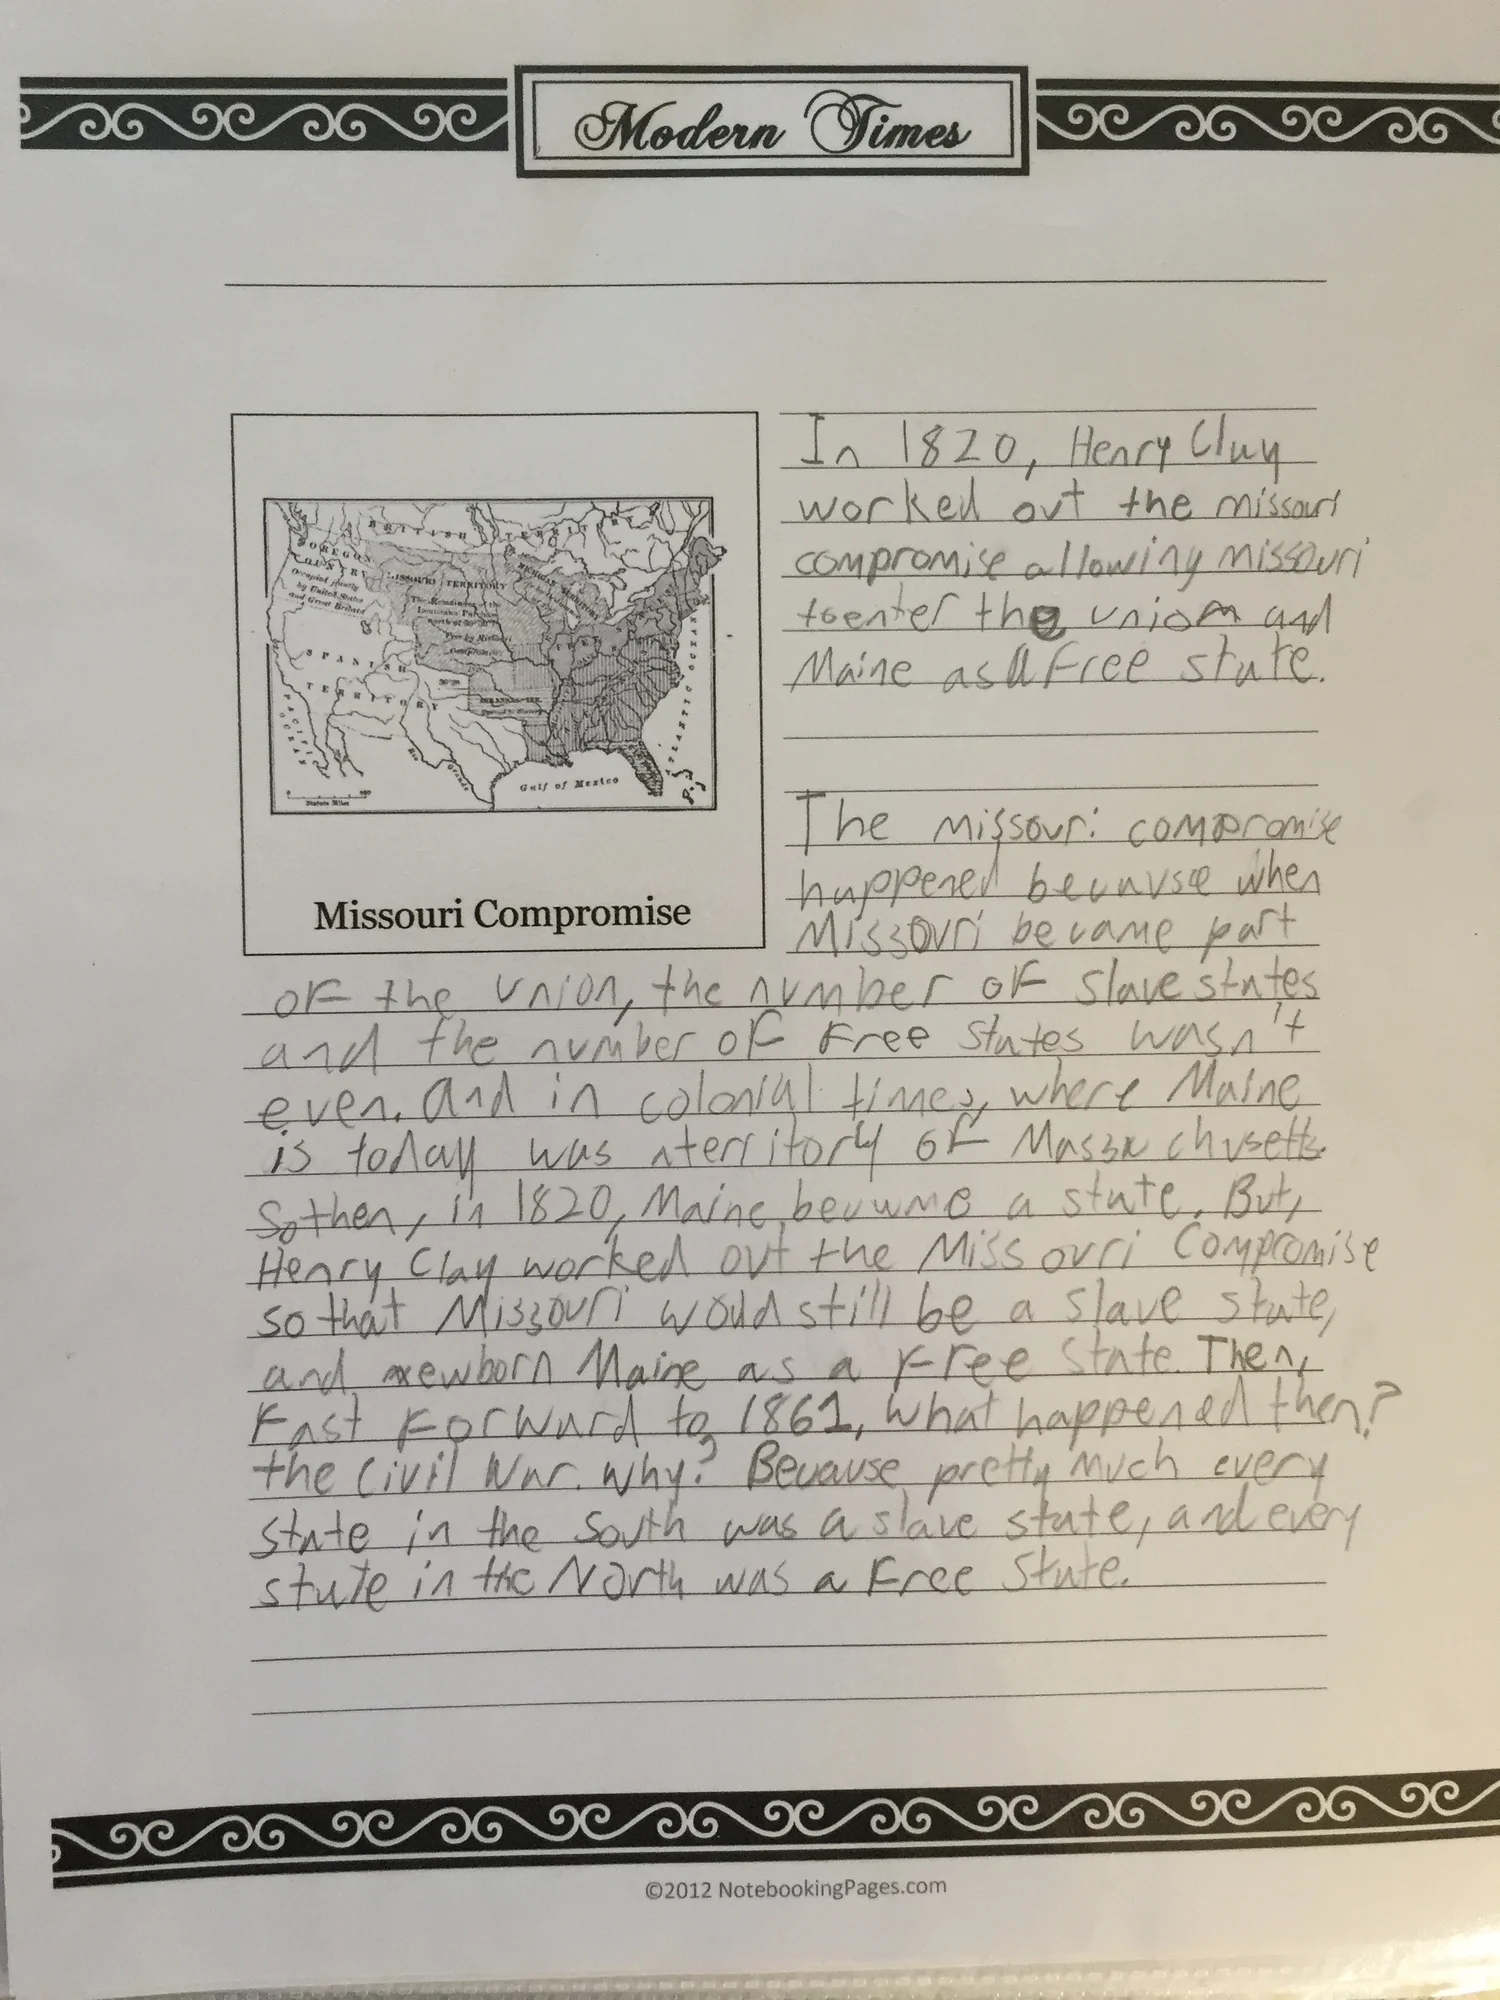 Modern Times
In 1820, Henry Clay
worked out the missouri
compromise allowing missouri
to enter the union and
Maine as a Free state.
BRITISH TERRITORY
OREGON
COUNTRY
Occupied jointly
by United States
and Great Britain
MISSOURI TERRITORY
The Remainder of the
Louisiana Purchase
north of 36°30'
Free by Missouri
Compromise
MICHIGAN TERRITORY
SPANISH
TERRITORY
36°30'
ARKANSAS TER.
PACIFIC
OCEAN
ATLANTIC OCEAN
Rio Grande
Gulf of Mexico
Statute Miles
Missouri Compromise
The missouri compromise
happened becausce when
Missouri became part
of the union, the number of slave states
and the number of Free states wasn't
even. and in colonial times, where Maine
is today was a territory of Massachusetts.
So then, in 1820, Maine became a state. But,
Henry Clay worked out the Missouri Compromise
so that Missouri would still be a slave state,
and newborn Maine as a Free state. Then,
Fast Forward to 1861, what happened then?
the Civil War. Why? Because pretty much every
state in the South was a slave state, and every
state in the North was a Free State.
©2012 NotebookingPages.com